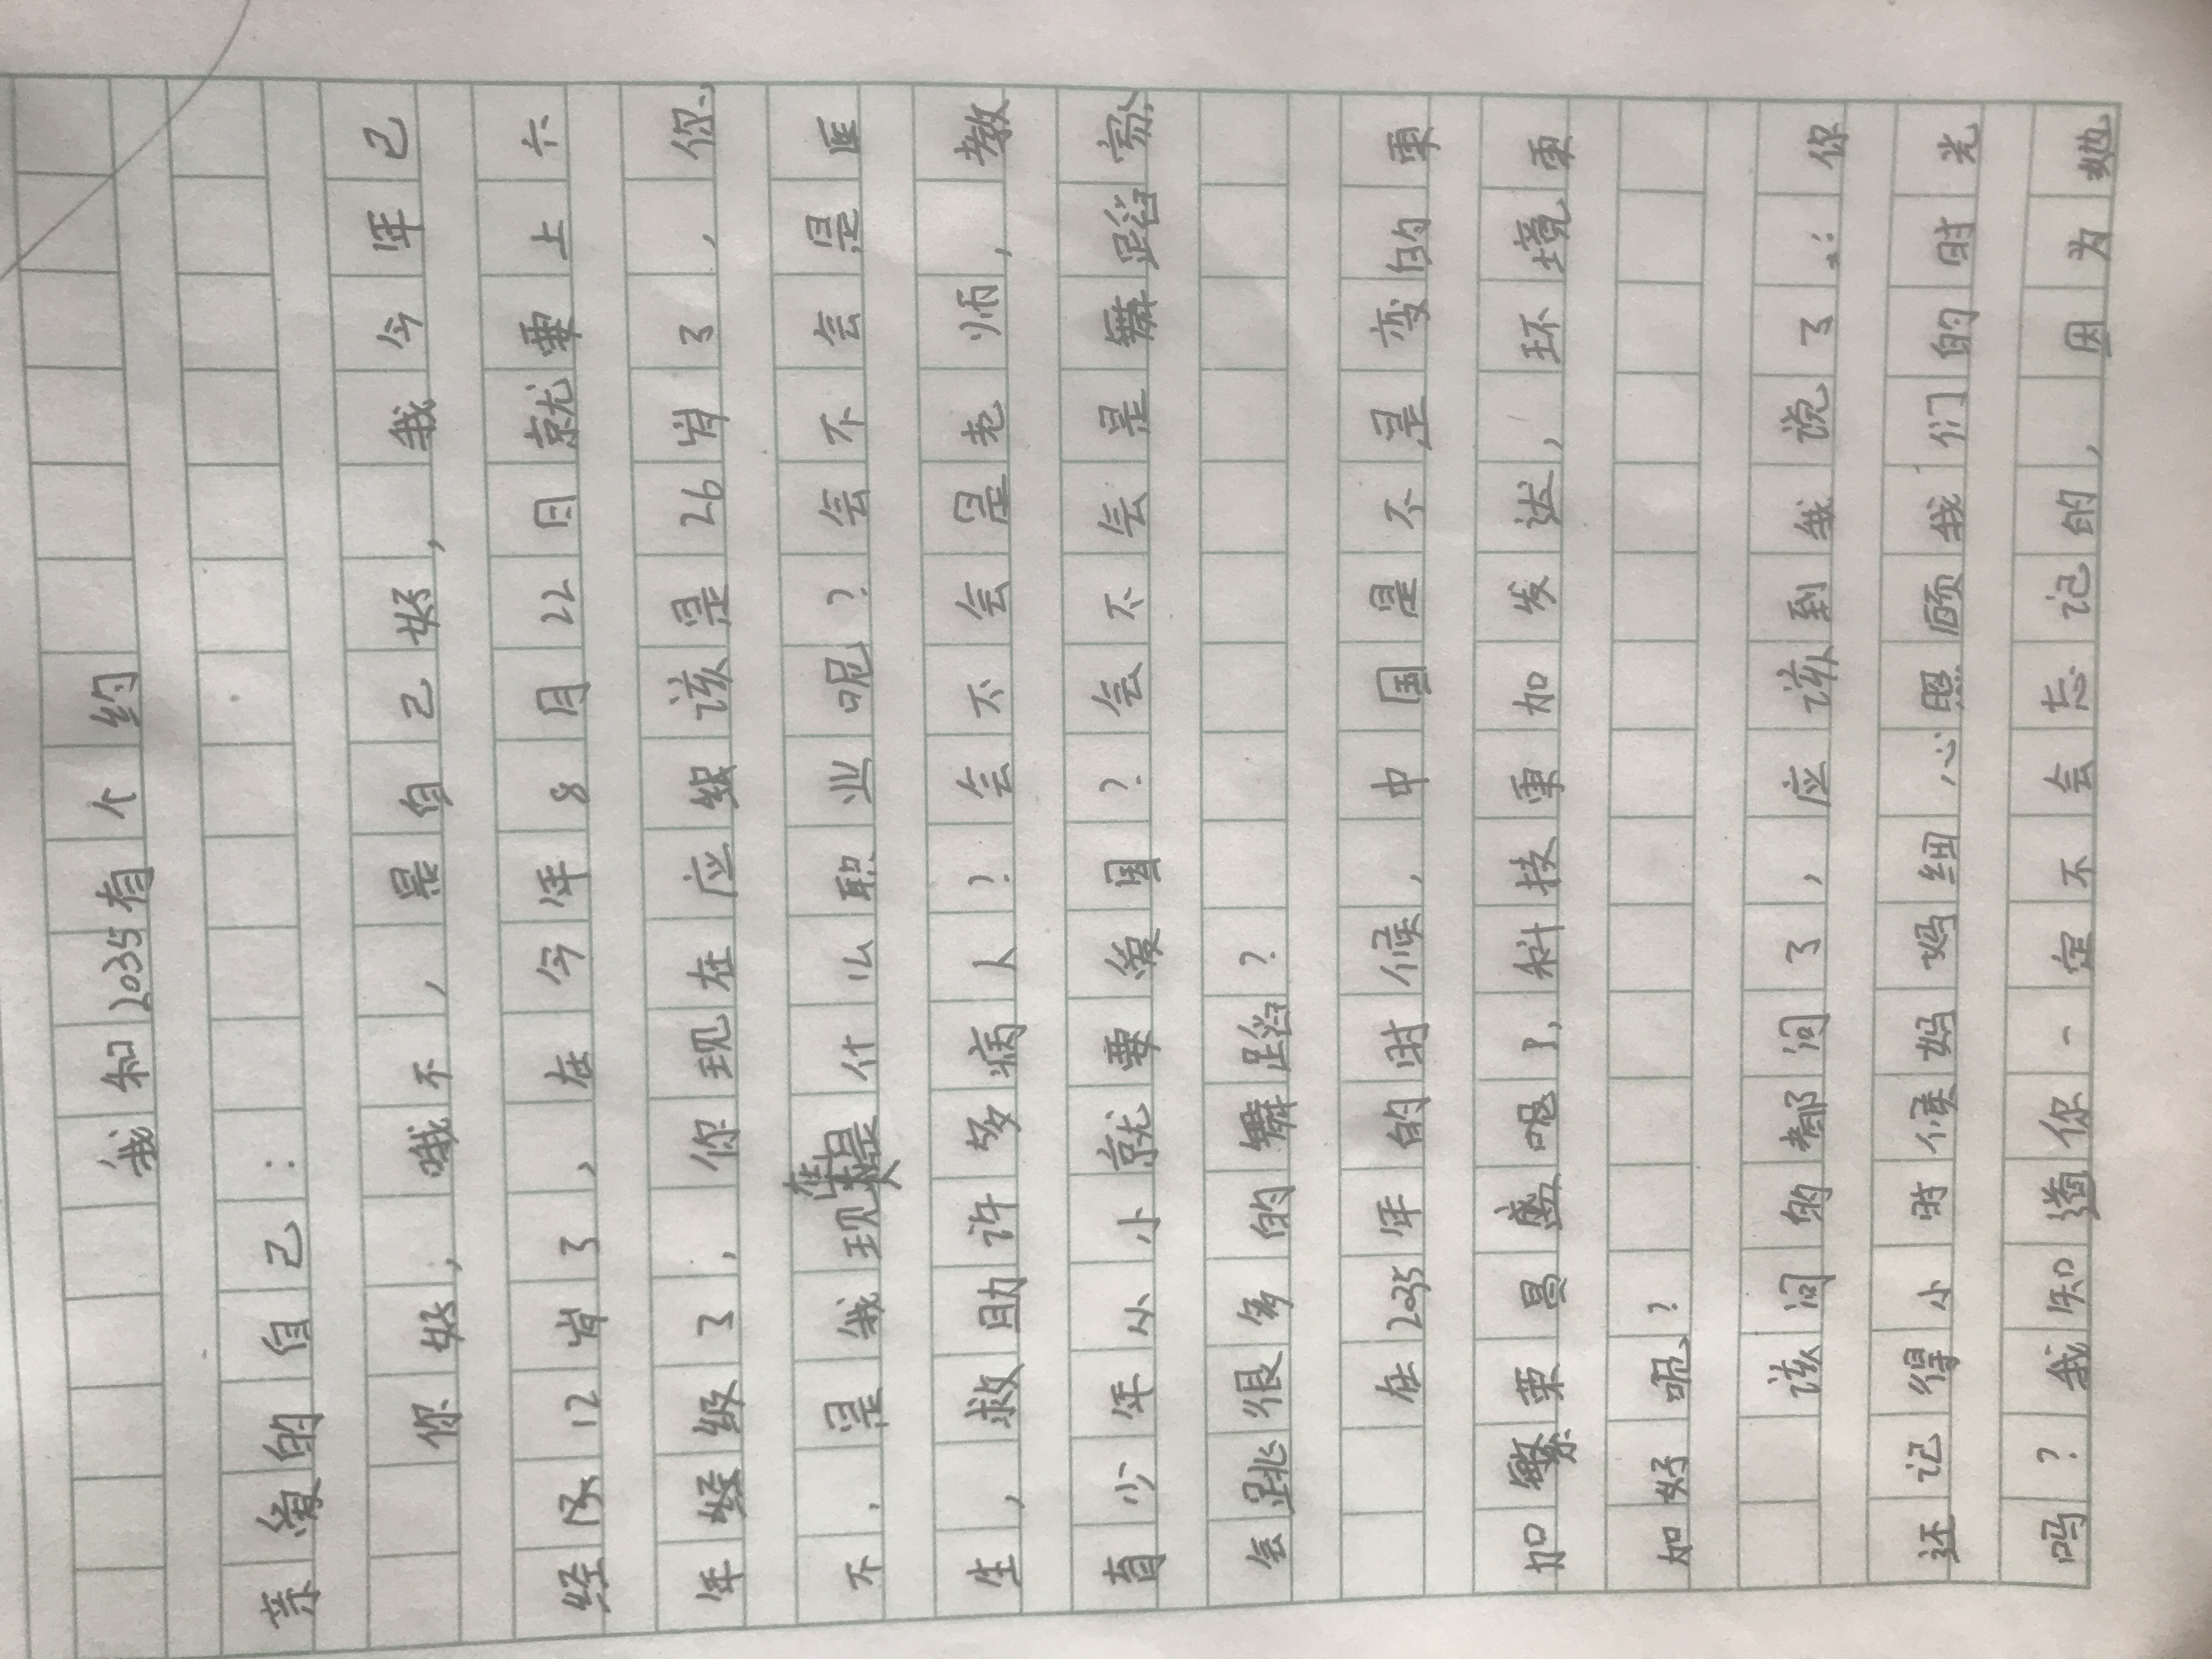 我和2035有个约
亲爱的自己:
你好,哦不,是自己好,我今年已
经13212岁了,在今年8月22日就要上六
年级了,你现在应该是26岁了,你,
不,是我现在是什么职业呢?会不会是医
生,救助许多病人?会不会是老师,教
育少年从小就要爱国?会不会是舞蹈家
会跳很多的舞蹈?
在2035年的时候,中国是不是变的更
加繁荣昌盛呢?,科技更加发达,环境更
加好呢?
该问的都问了,应该到我说了:你
还记得小时候妈妈细心照顾我们的时光
吗?我知道你一定不会忘记的,因为她